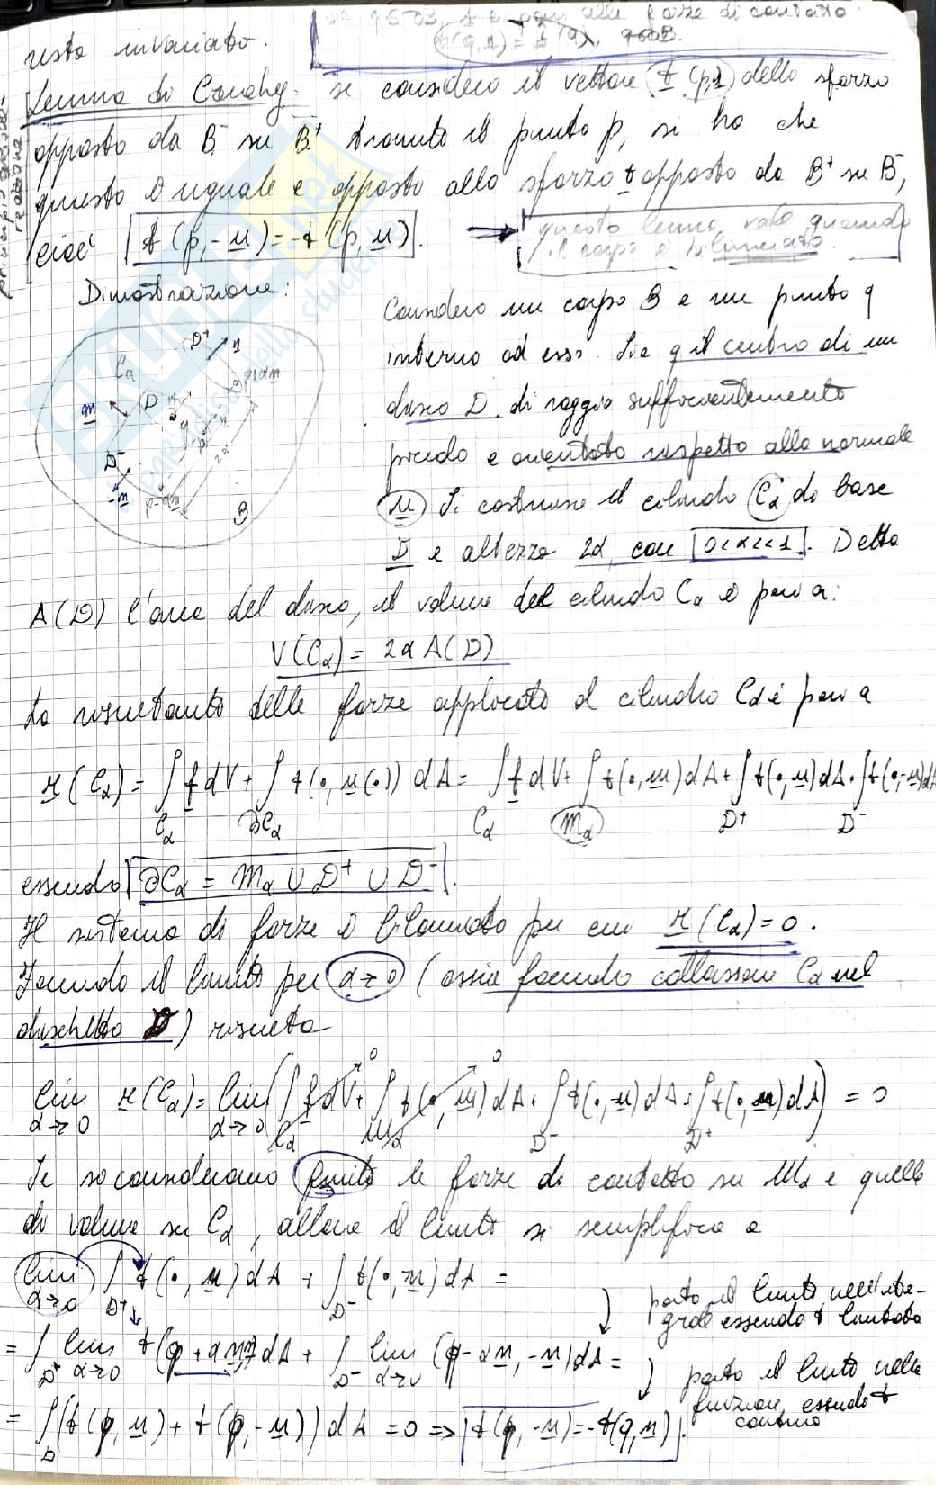 resta invariato.
Lemma di Cauchy. si consideri il vettore t (p, n) dello sforzo
opposto da B⁻ su B⁺ tramite il punto p, si ha che
questo è uguale e opposto allo sforzo t opposto da B⁺ su B⁻,
cioè t (p, -n) = -t (p, n).
questo lemma vale quando
il corpo è bilanciato.
principio azione
reazione
Dimostrazione:
Considero un corpo B e un punto q
interno ad esso. Sia q il centro di un
disco D di raggio sufficientemente
piccolo e orientato rispetto alla normale
n. Si costruisce il cilindro Cα di base
D e altezza 2α, con 0<α<<1. Detta
D⁺
Cα
m
D
D⁻
-n
B
A(D) l'area del disco, il volume del cilindro Cα è pari a:
V(Cα) = 2α A(D)
La risultante delle forze applicate al cilindro Cα è pari a
r (Cα) = ∫ f dV + ∫ t(•, n(•)) dA = ∫ f dV + ∫ t(•, m) dA + ∫ t(•, n) dA + ∫ t(•, -n) dA
Cα ∂Cα Cα Mα D⁺ D⁻
essendo ∂Cα = Mα ∪ D⁺ ∪ D⁻.
Il sistema di forze è bilanciato per cui r (Cα) = 0.
Facendo il limite per α→0 (ossia facendo collassare Cα nel
dischetto D) risulta
lim r (Cα) = lim (∫ f dV + ∫ t(•, m) dA + ∫ t(•, n) dA + ∫ t(•, n) dA) = 0
α→0 α→0 Cα Mα D⁻ D⁺
Se si considerano finite le forze di contatto su Mα e quelle
di volume su Cα, allora il limite si semplifica a
lim ∫ t (•, n) dA + ∫ t(•, -n) dA =
α→0 D⁺ D⁻
porto il limite nell'inte-
grale essendo t limitata
= ∫ lim t (q + αn, n) dA + ∫ lim (q - αn, -n) dA =
D⁺ α→0 D⁻ α→0
porto il limite nella
funzione, essendo t
continua
= ∫ (t (q, n) + t (q, -n)) dA = 0 => t (q, -n) = -t(q, n).
D